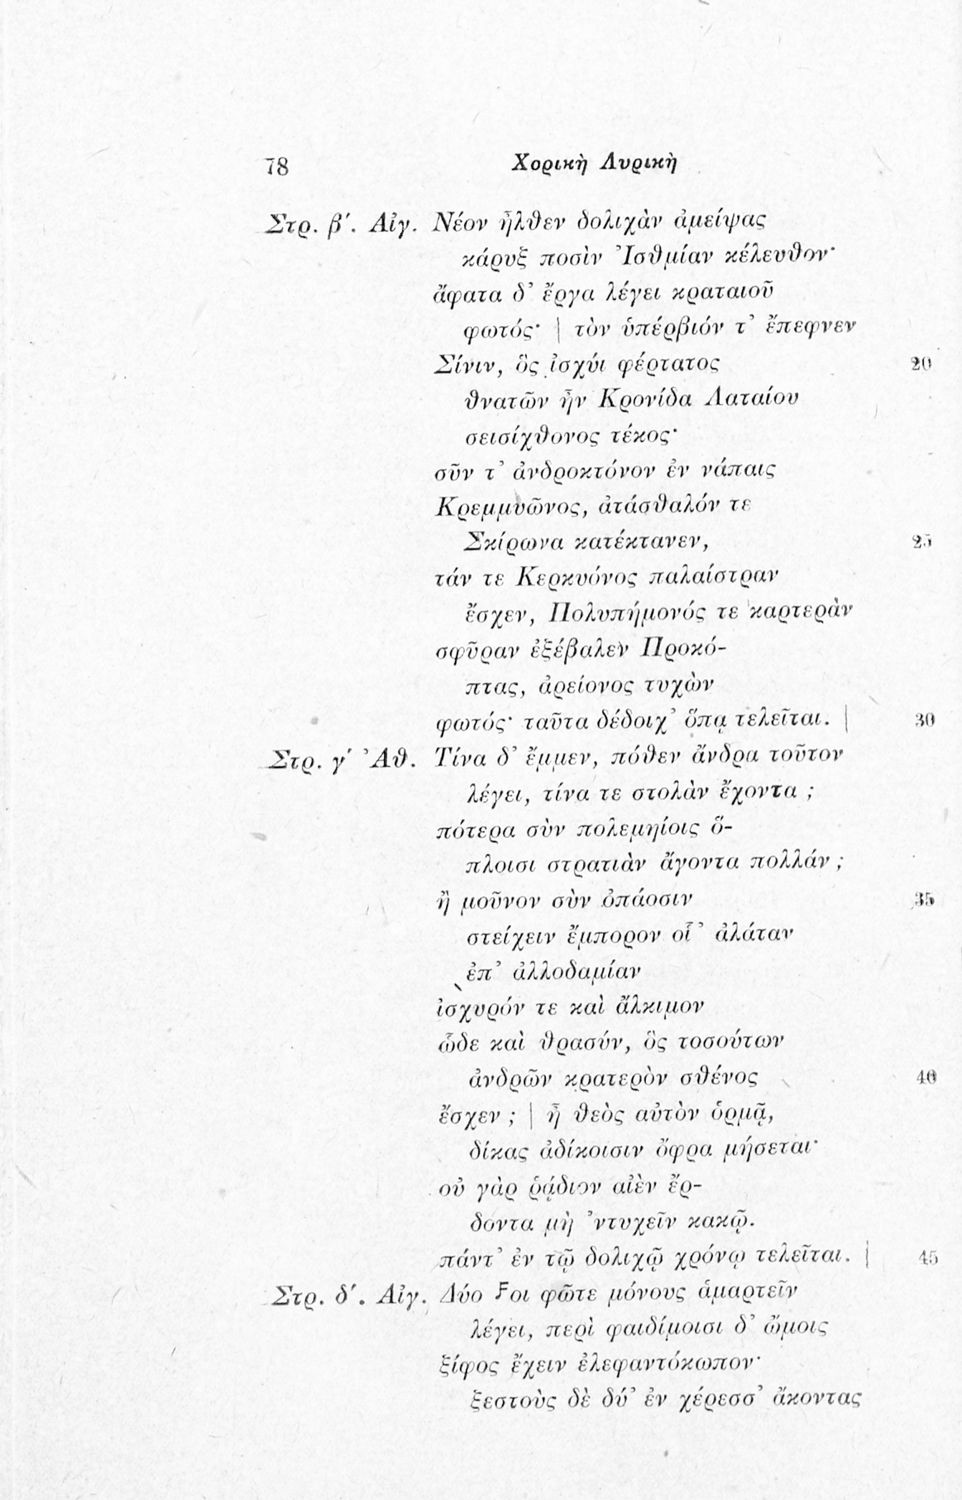 78 Χορικὴ Λυρικὴ
Στρ. β΄. Αἰγ. Νέον ἦλθεν δολιχὰν ἀμείψας
κάρυξ ποσὶν Ἰσθμίαν κέλευθον·
ἄφατα δ’ ἔργα λέγει κραταιοῦ
φωτός· | τὸν ὑπέρβιόν τ’ ἔπεφνεν
Σίνιν, ὃς ἰσχύι φέρτατος 20
θνατῶν ἦν Κρονίδα Λυταίου
σεισίχθονος τέκος·
σῦν τ’ ἀνδροκτόνον ἐν νάπαις
Κρεμμυῶνος, ἀτάσθαλόν τε
Σκίρωνα κατέκτανεν, 25
τάν τε Κερκυόνος παλαίστραν
ἔσχεν, Πολυπήμονός τε καρτερὰν
σφῦραν ἐξέβαλεν Προκό-
πτας, ἀρείονος τυχὼν
φωτός· ταῦτα δέδοιχ’ ὅπᾳ τελεῖται. | 30
Στρ. γ΄ Ἀθ. Τίνα δ’ ἔμμεν, πόθεν ἄνδρα τοῦτον
λέγει, τίνα τε στολὰν ἔχοντα ;
πότερα σὺν πολεμηίοις ὅ-
πλοισι στρατιὰν ἄγοντα πολλάν ;
ἢ μοῦνον σὺν ὀπάοσιν 35
στείχειν ἔμπορον οἷ’ ἀλάταν
ἐπ’ ἀλλοδαμίαν
ἰσχυρόν τε καὶ ἄλκιμον
ὧδε καὶ θρασύν, ὃς τοσούτων
ἀνδρῶν κρατερὸν σθένος 40
ἔσχεν ; | ἦ θεὸς αὐτὸν ὁρμᾷ,
δίκας ἀδίκοισιν ὄφρα μήσεται·
οὐ γὰρ ῥᾴδιον αἰὲν ἔρ-
δοντα μὴ ’ντυχεῖν κακῷ.
πάντ’ ἐν τῷ δολιχῷ χρόνῳ τελεῖται. | 45
Στρ. δ΄. Αἰγ. Δύο Ϝοι φῶτε μόνους ἁμαρτεῖν
λέγει, περὶ φαιδίμοισι δ’ ὤμοις
ξίφος ἔχειν ἐλεφαντόκωπον·
ξεστοὺς δὲ δύ’ ἐν χέρεσσ’ ἄκοντας